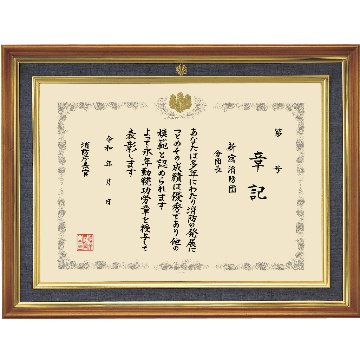 第 号
章記
新宿消防団
分団長
あなたは多年にわたり消防の発展に
つとめその成績は優秀であり他の
模範と認められます
よって永年勤続功労章を授与して
表彰します
令和 年 月 日
消防庁長官